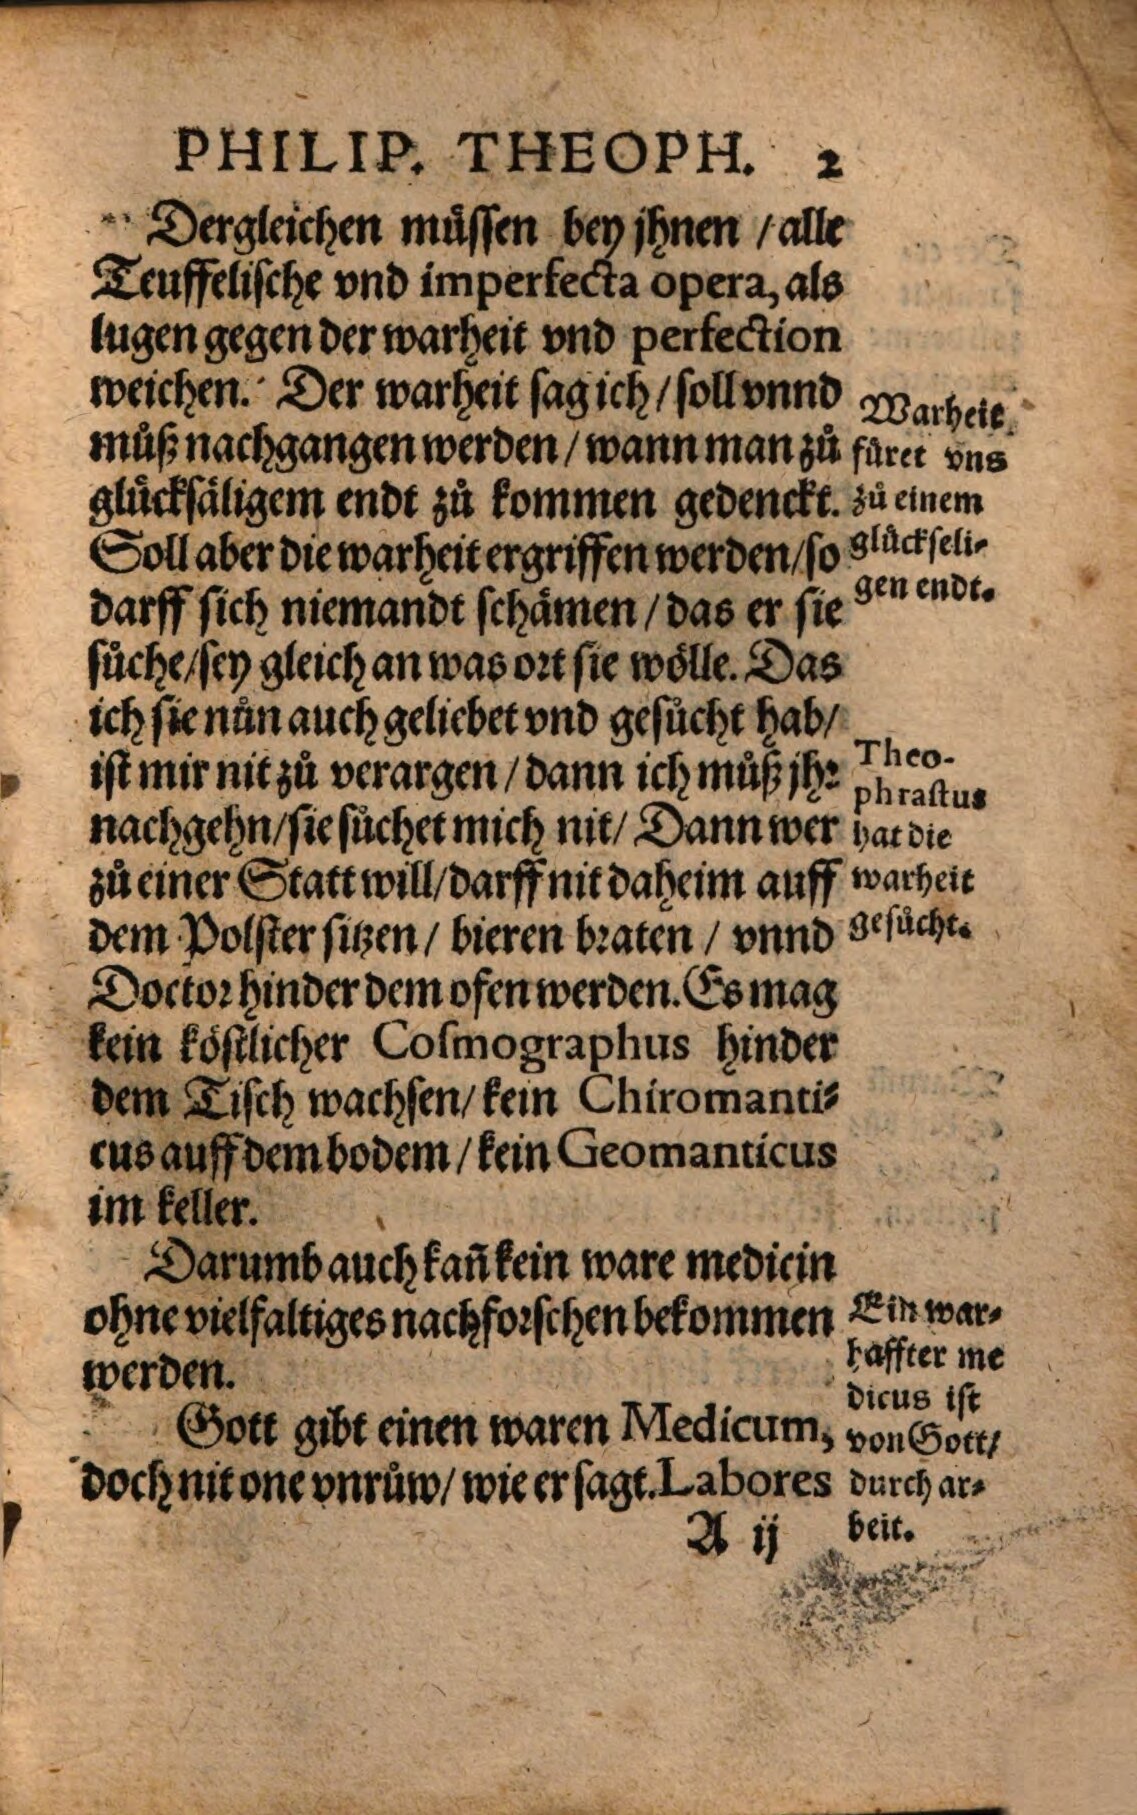 PHILIP. THEOPH. 2
Dergleichen muͤssen bey jhnen / alle
Teuffelische vnd imperfecta opera, als
lugen gegen der warheit vnd perfection
weichen. Der warheit sag ich / soll vnnd
muͦß nachgangen werden / wann man zuͦ
gluͤcksaͤligem endt zuͦ kommen gedenckt.
Soll aber die warheit ergriffen werden / so
darff sich niemandt schaͤmen / das er sie
suͦche / sey gleich an was ort sie woͤlle. Das
ich sie nuͦn auch geliebet vnd gesuͦcht hab /
ist mir nit zuͦ verargen / dann ich muͦß jhr
nachgehn / sie suͦchet mich nit / Dann wer
zuͦ einer Statt will / darff nit daheim auff
dem Polster sitzen / bieren braten / vnnd
Doctor hinder dem ofen werden. Es mag
kein koͤstlicher Cosmographus hinder
dem Tisch wachsen / kein Chiromanti-
cus auff dem bodem / kein Geomanticus
im keller.
Darumb auch kañ kein ware medicin
ohne vielfaltiges nachforschen bekommen
werden.
Gott gibt einen waren Medicum,
doch nit one vnruͦw / wie er sagt. Labores
A ij
Warheit
fuͤret vns
zuͦ einem
gluͤckseli-
gen endt.
Theo-
phrastus
hat die
warheit
gesuͦcht.
Ein war-
haffter me
dicus ist
von Gott /
durch ar-
beit.